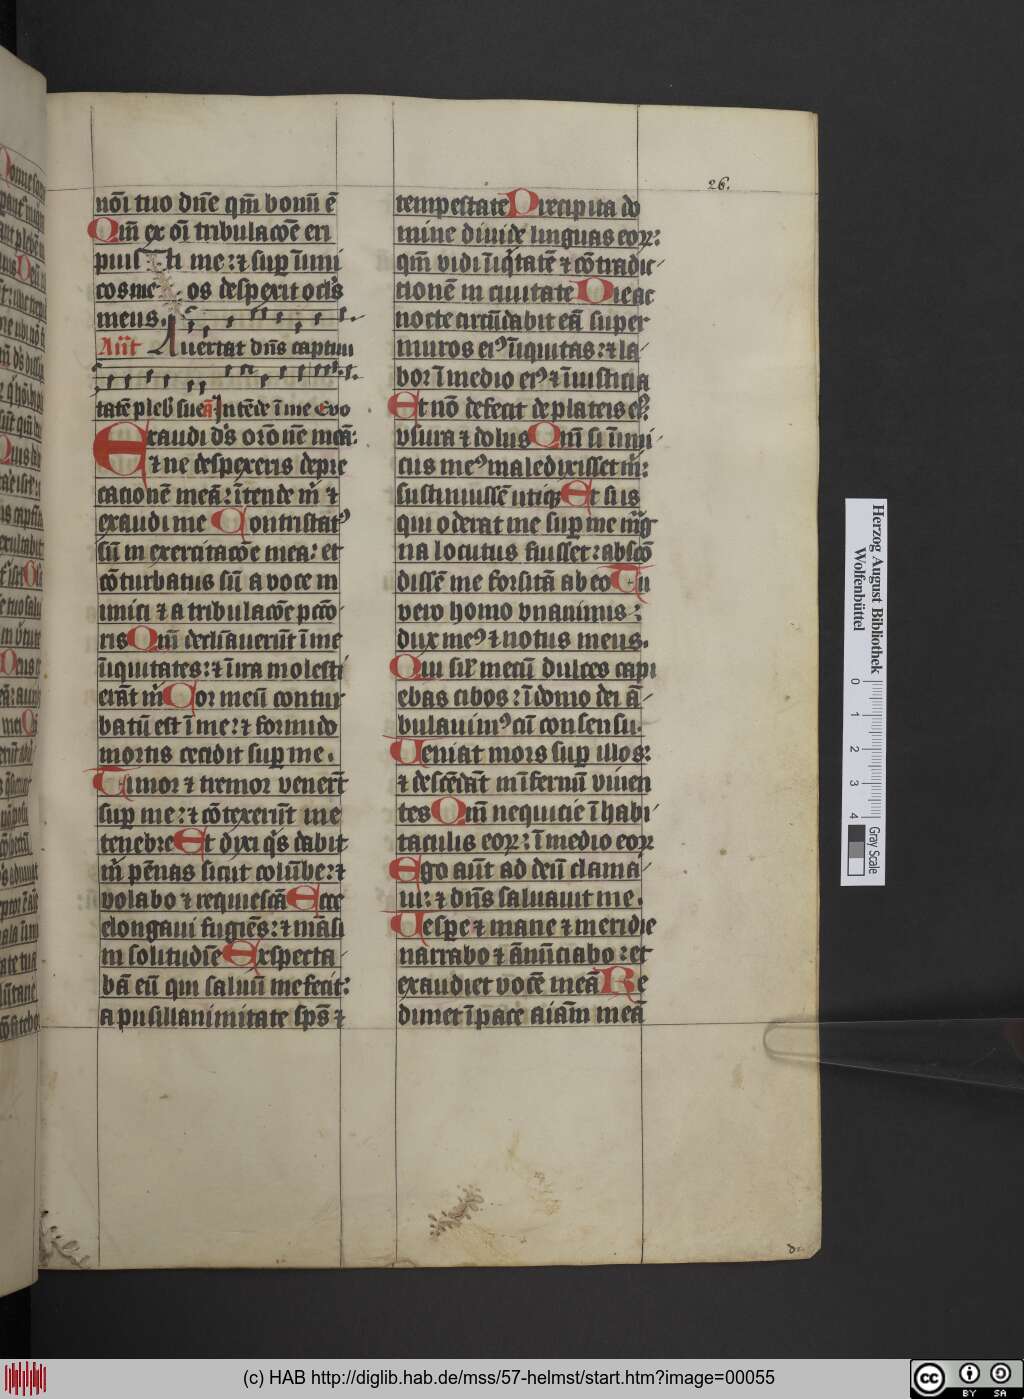 26.
nōı tuo dn̄e qm̄ bonū ē
Qm̄ ex oı̄ tribulacōe eri
puis
me : ⁊ suꝑ īimi
cos me
os despexit ocl's
meus.
Ant̄ Auertat dn̄s captiui
tatē pleb' sue ā Intēde ī me Evo
Exaudi d's orōnē meā:
⁊ ne despexeris depre
cacionē meā : ītende m̄ ⁊
exaudi me Contristatꝰ
sū in exercitacōe mea : et
cōturbatus sū a voce in
imici ⁊ a tribulacōe pctō
ris Qm̄ declīauerūt ī me
īiquitates : ⁊ ī ira molesti
erāt m̄ Cor meū contur
batū est ī me : ⁊ formido
mortis cecidit suꝑ me.
Timor ⁊ tremor venert̄
suꝑ me : ⁊ cōtexerūt me
tenebre Et dyxi q's dabit
m̄ pēnas sicut colūbe : ⁊
volabo ⁊ requiescā Ecce
elongaui fugiēs : ⁊ māsi
in solitudīe Exspecta
bā eū qui saluū me fecit :
a pusillanimitate sps̄ ⁊
tempestate Precipita do
mine diuide linguas eoꝝ :
qm̄ vidi īiq̄tatē ⁊ cōtradic
tionē in ciuitate Die ac
nocte circūdabit eā super
muros eiꝰ īiquitas : ⁊ la
bor ī medio eiꝰ ⁊ īiusticia
Et nō defecit de plateis eiꝰ
vsura ⁊ dolus Qm̄ si īimi
cus meꝰ maledixisset m̄ :
sustinuissē utiqꝫ Et si is
qui oderat me suꝑ me mag
na locutus fuisset : abscō
dissē me forsitā ab eo Tu
vero homo vnanimis :
dux meꝰ ⁊ notus meus.
Qui sil' mecū dulces capi
ebas cibos : ī domo dei ā
bulauimꝰ cū consensu.
Veniat mors suꝑ illos :
⁊ descēdāt in īfernū viuen
tes Qm̄ nequicie ī habi
taculis eoꝝ : ī medio eoꝝ
Ego aūt ad deū clama
ui : ⁊ dn̄s saluauit me.
Vesꝑe ⁊ mane ⁊ meridie
narrabo ⁊ ānūciabo : et
exaudiet vocē meā Re
dimet ī pace aīam meā
Herzog August Bibliothek
Wolfenbüttel
0 1 2 3 4
Gray Scale
(c) HAB http://diglib.hab.de/mss/57-helmst/start.htm?image=00055
cc BY SA